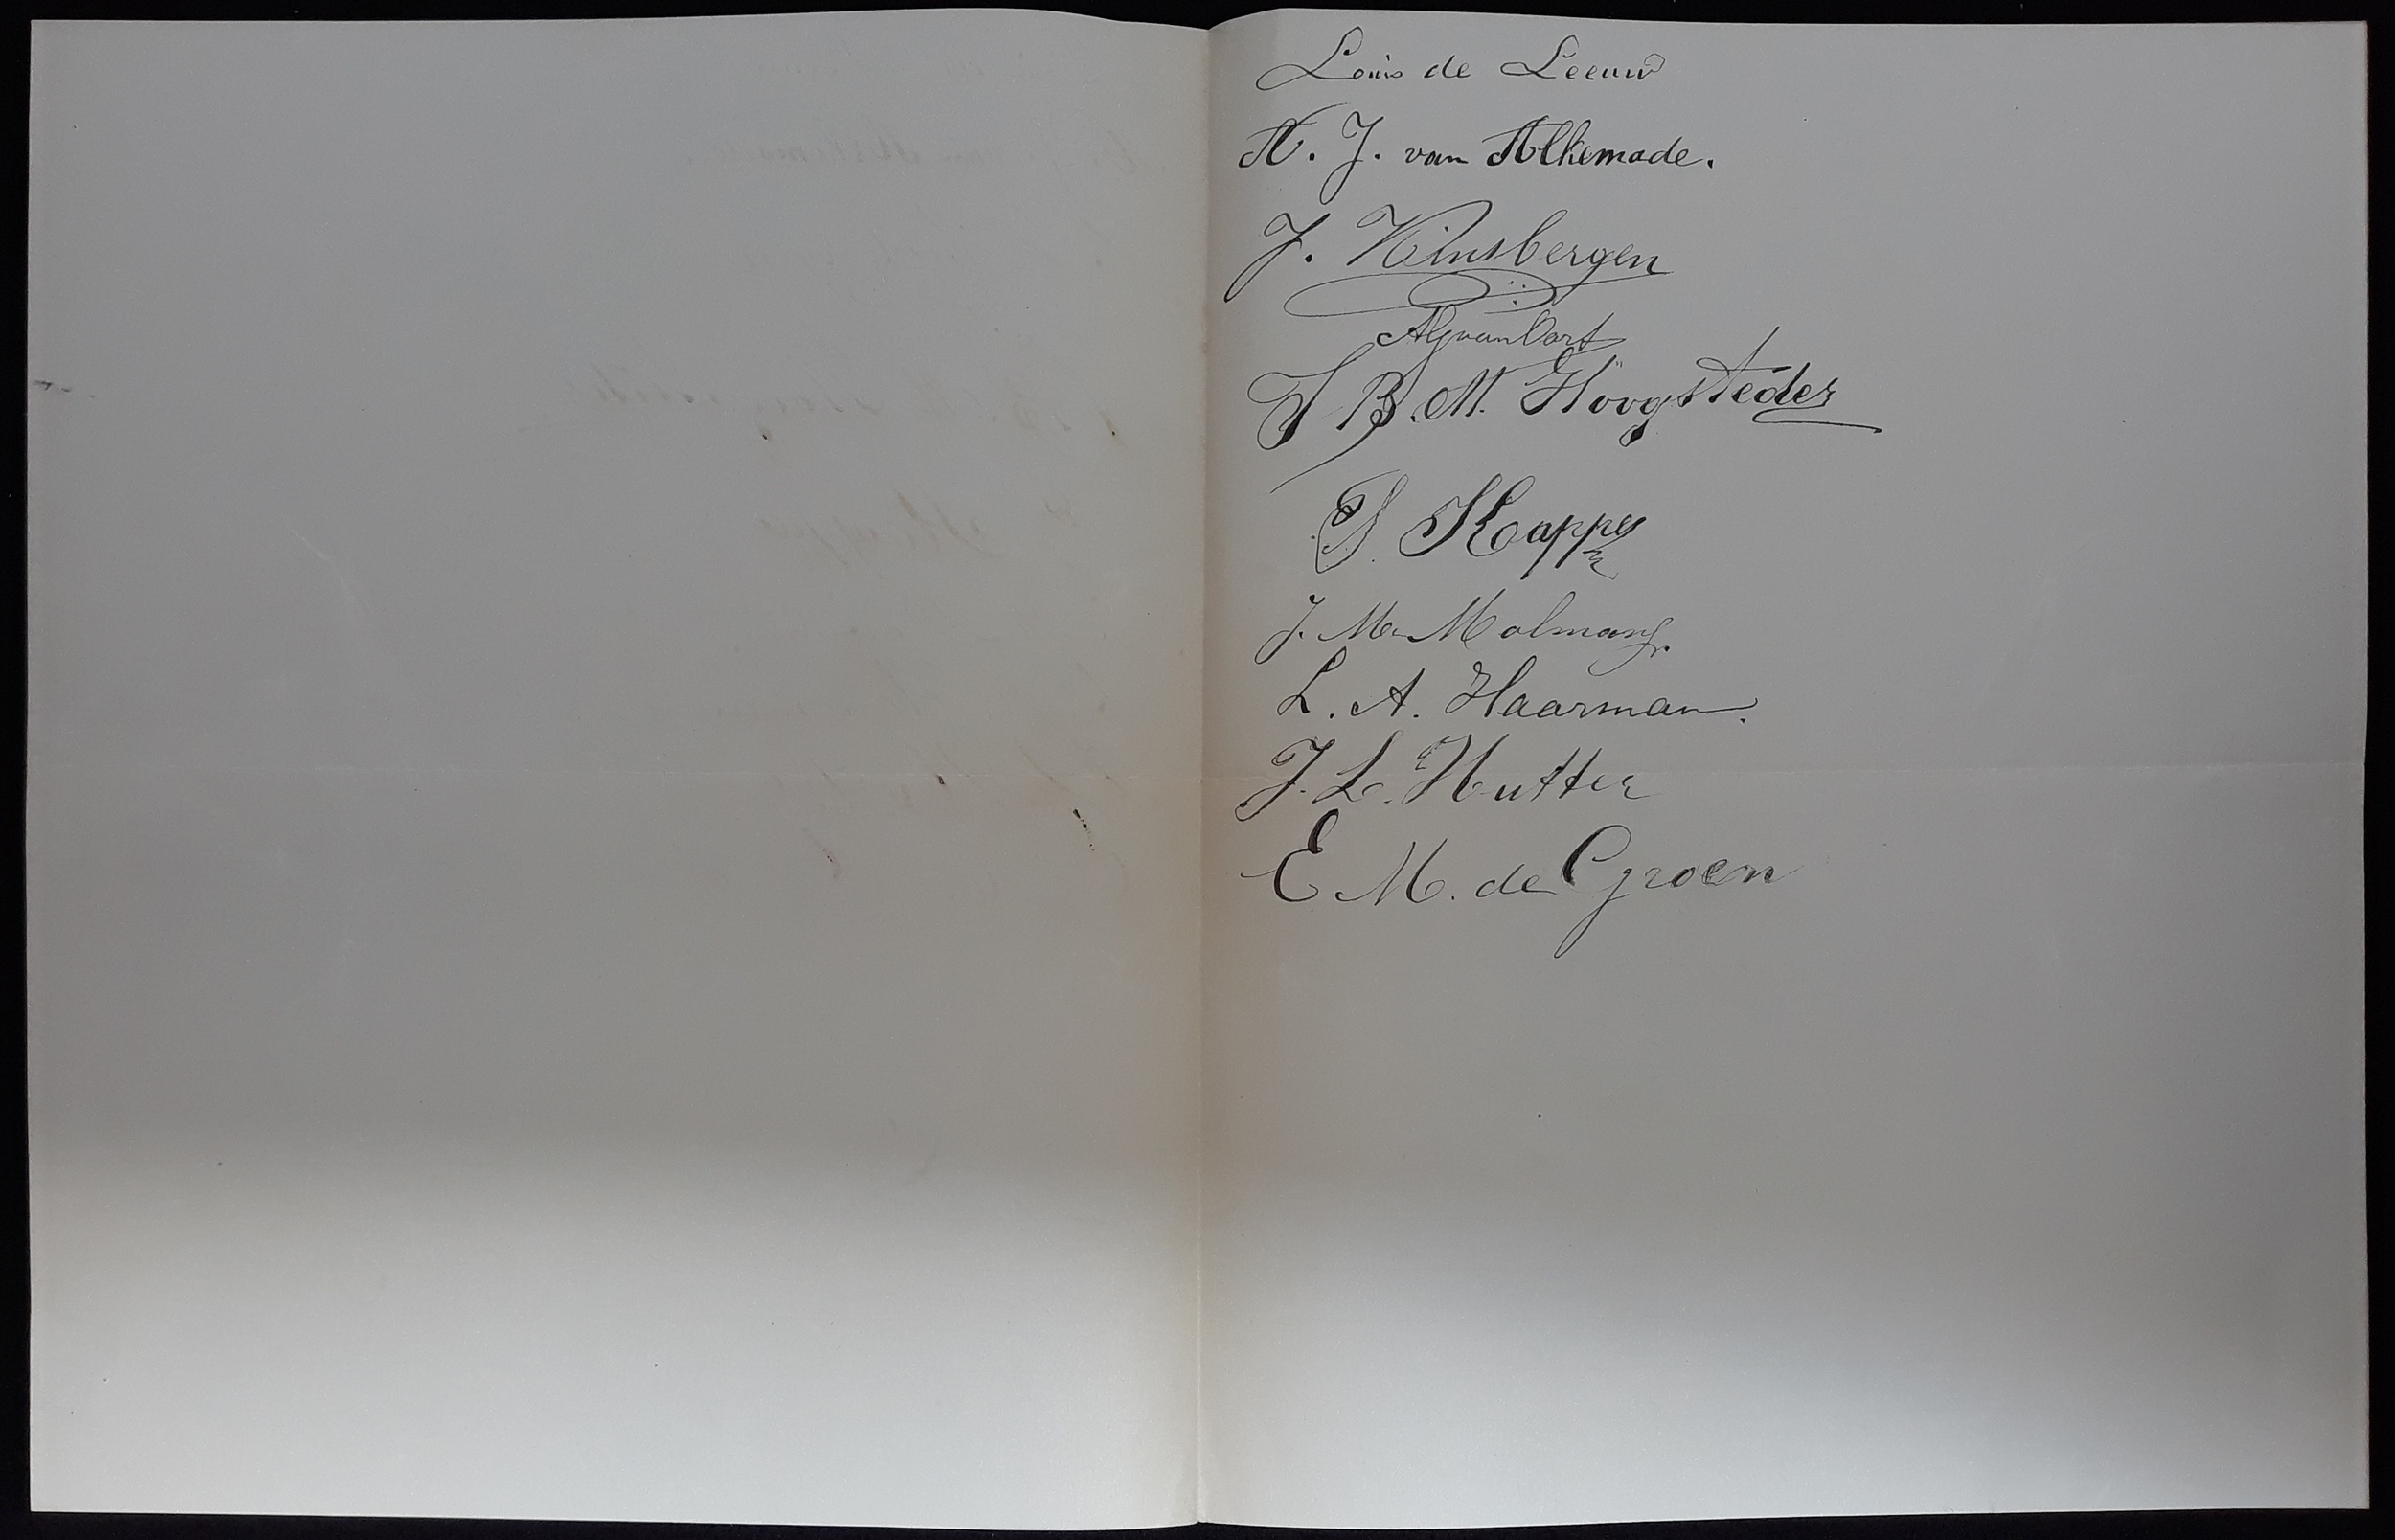 Louis de Leeuw
N. J. van Alkemade.
J. Kinsbergen
AGvanOort
J B. M. Hoogsteder
J. Kappe
J. M. Molmans.
L. A. Haarman.
J. L. Hutter
E M. de Groen